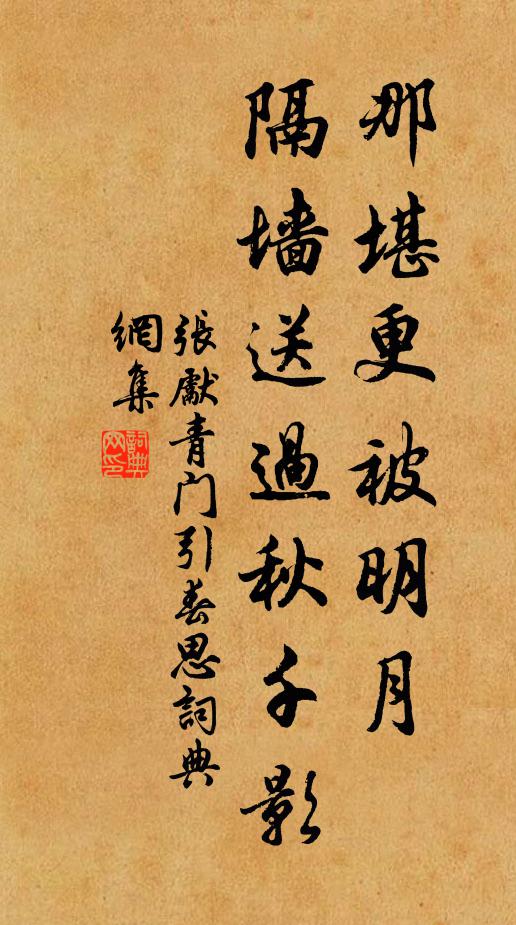 那堪更被明月
隔墙送過秋千影
張獻青门引春思詞典
網集
詞典
网印